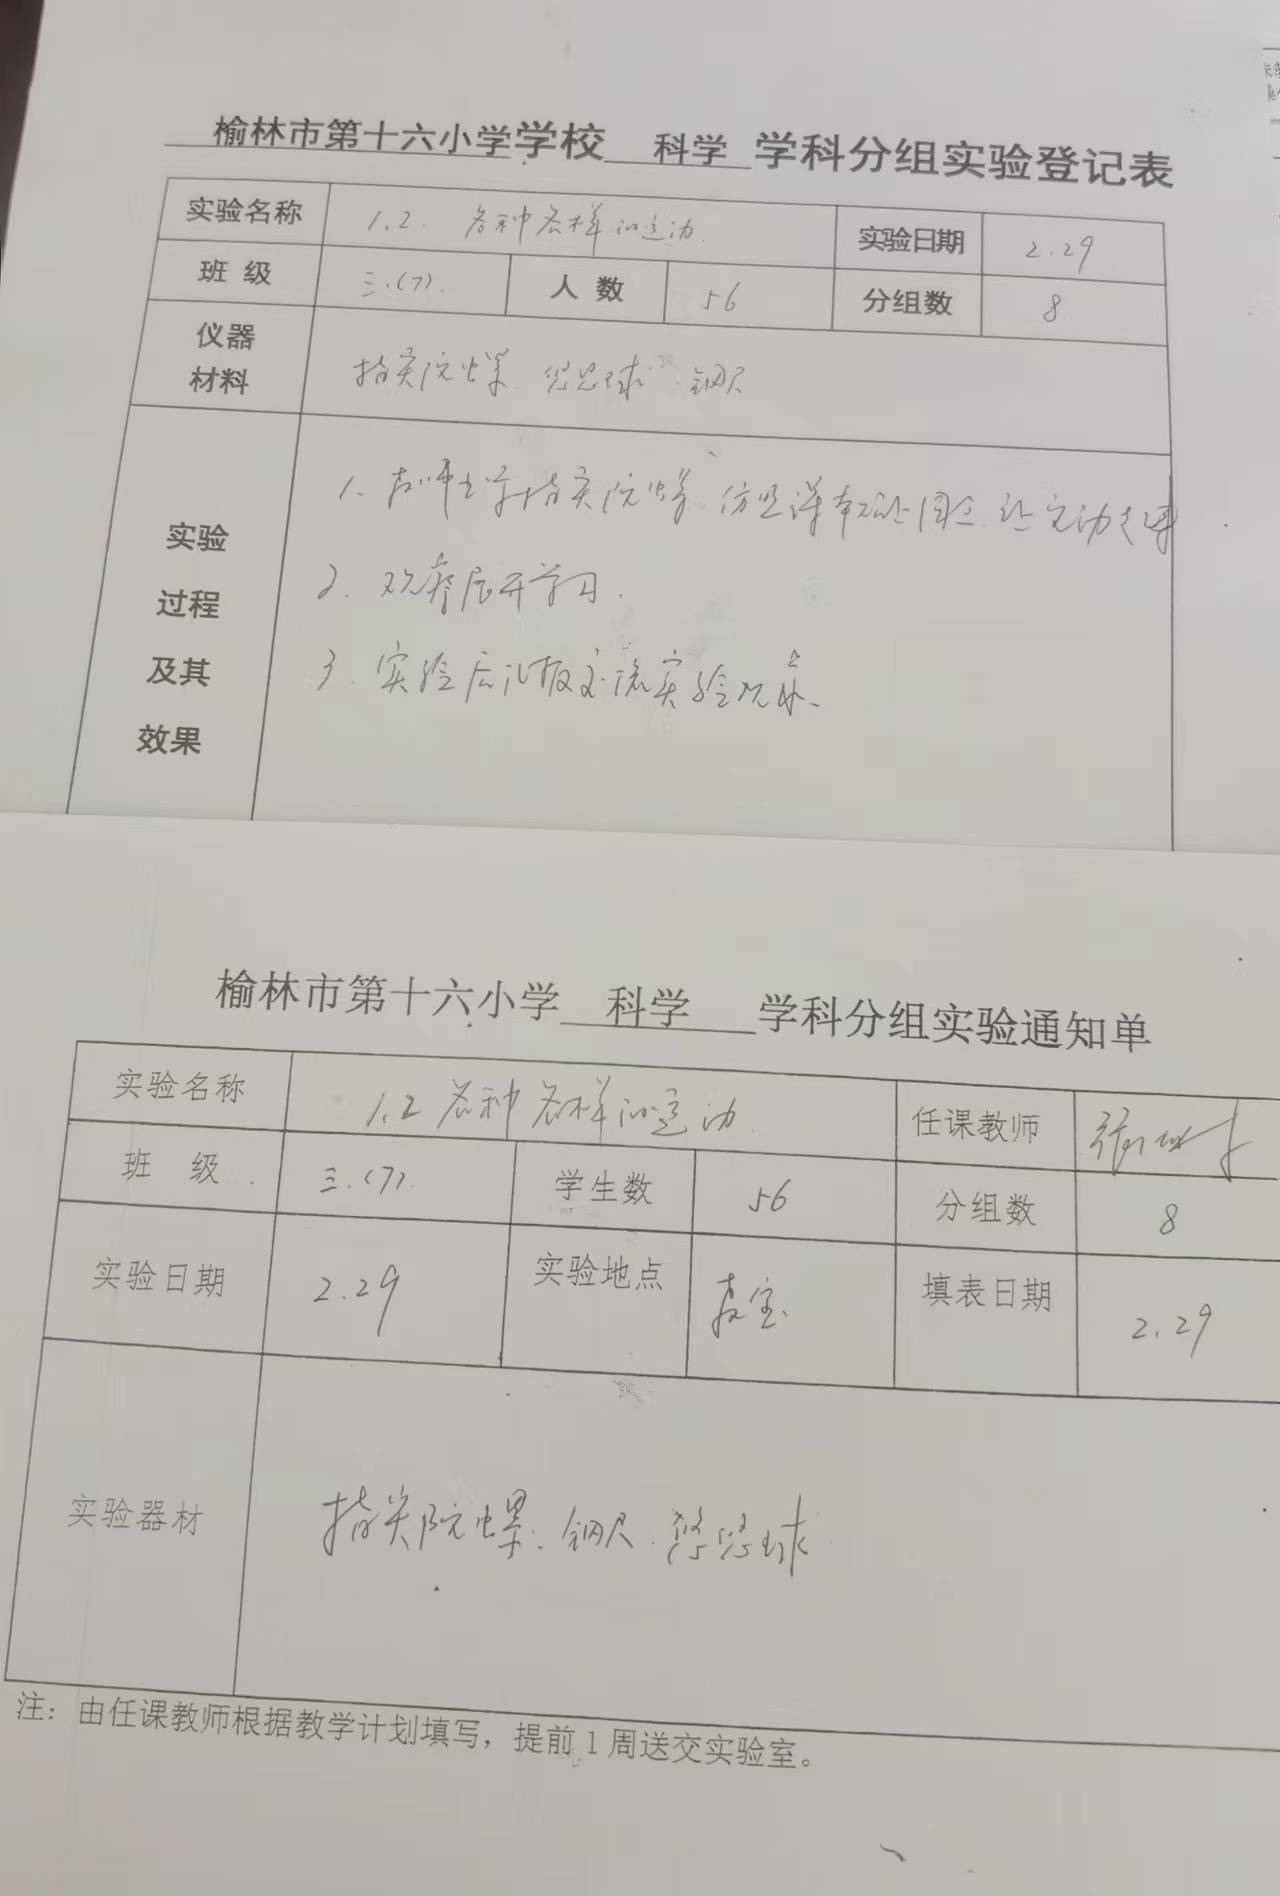 榆林市第十六小学学校 科学 学科分组实验登记表
实验名称 1.2. 各种各样的运动. 实验日期 2.29
班 级 三.(7). 人 数 56 分组数 8
仪器材料 指尖陀螺. 悠悠球. 钢尺
实验过程及其效果
1. 指尖陀螺. 仿照课本 让它动起来.
2. 观察展开学习.
3. 实验后汇报交流实验现象.
榆林市第十六小学 科学 学科分组实验通知单
实验名称 1.2 各种各样的运动. 任课教师
班 级 三.(7). 学生数 56 分组数 8
实验日期 2.29 实验地点 教室. 填表日期 2.29
实验器材 指尖陀螺. 钢尺. 悠悠球.
注：由任课教师根据教学计划填写，提前1周送交实验室。